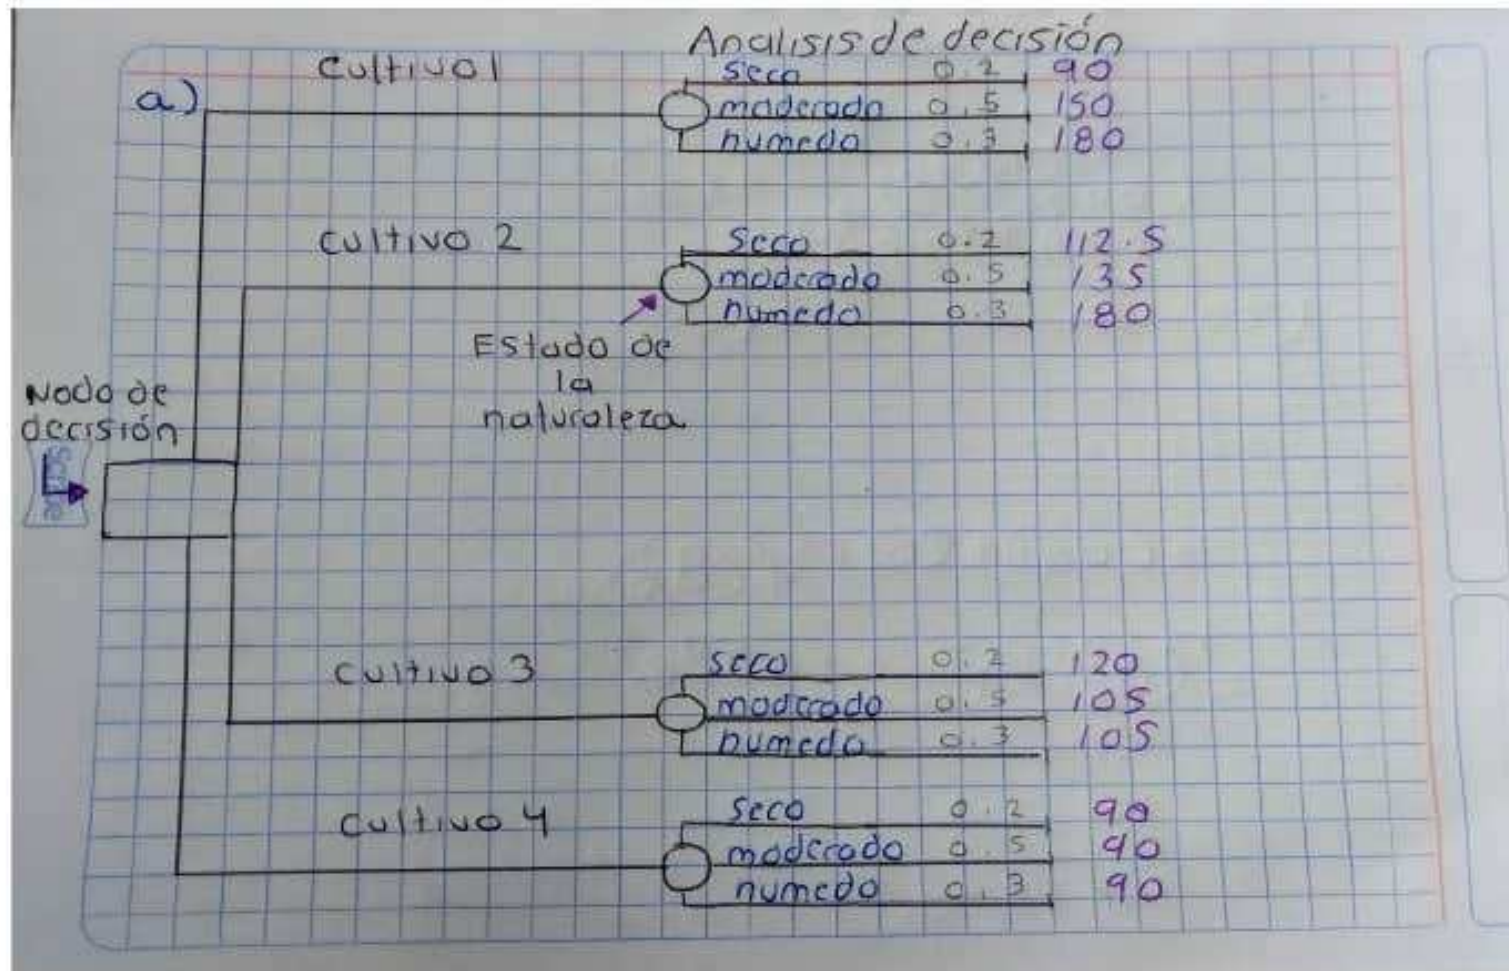 Analisis de decisión
a)
cultivo 1
seco 0.2 90
moderado 0.5 150
humedo 0.3 180
cultivo 2
seco 0.2 112.5
moderado 0.5 135
humedo 0.3 180
Estado de
la
naturaleza
Nodo de
decisión
Scribe
cultivo 3
seco 0.2 120
moderado 0.5 105
humedo 0.3 105
cultivo 4
seco 0.2 90
moderado 0.5 90
humedo 0.3 90